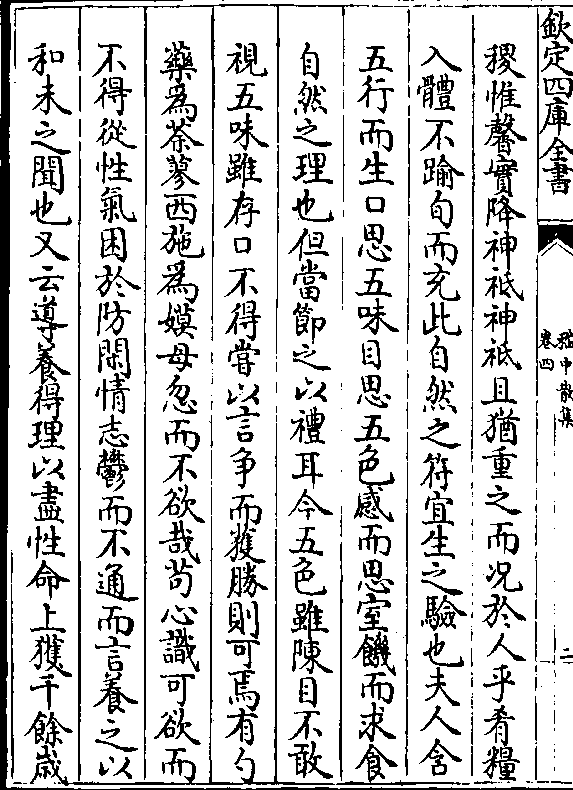 欽定四庫全書
嵇中散集
卷四
二
稷惟馨實降神祗神祗且猶重之而况於人乎肴糧
入體不踰旬而充此自然之符宜生之驗也夫人含
五行而生口思五味目思五色感而思室饑而求食
自然之理也但當節之以禮耳今五色雖陳目不敢
視五味雖存口不得嘗以言争而獲勝則可焉有勺
藥為荼蓼西施為嫫母忽而不欲哉苟心識可欲而
不得從性氣困於防閑情志鬱而不通而言養之以
和未之聞也又云導養得理以盡性命上獲千餘歳